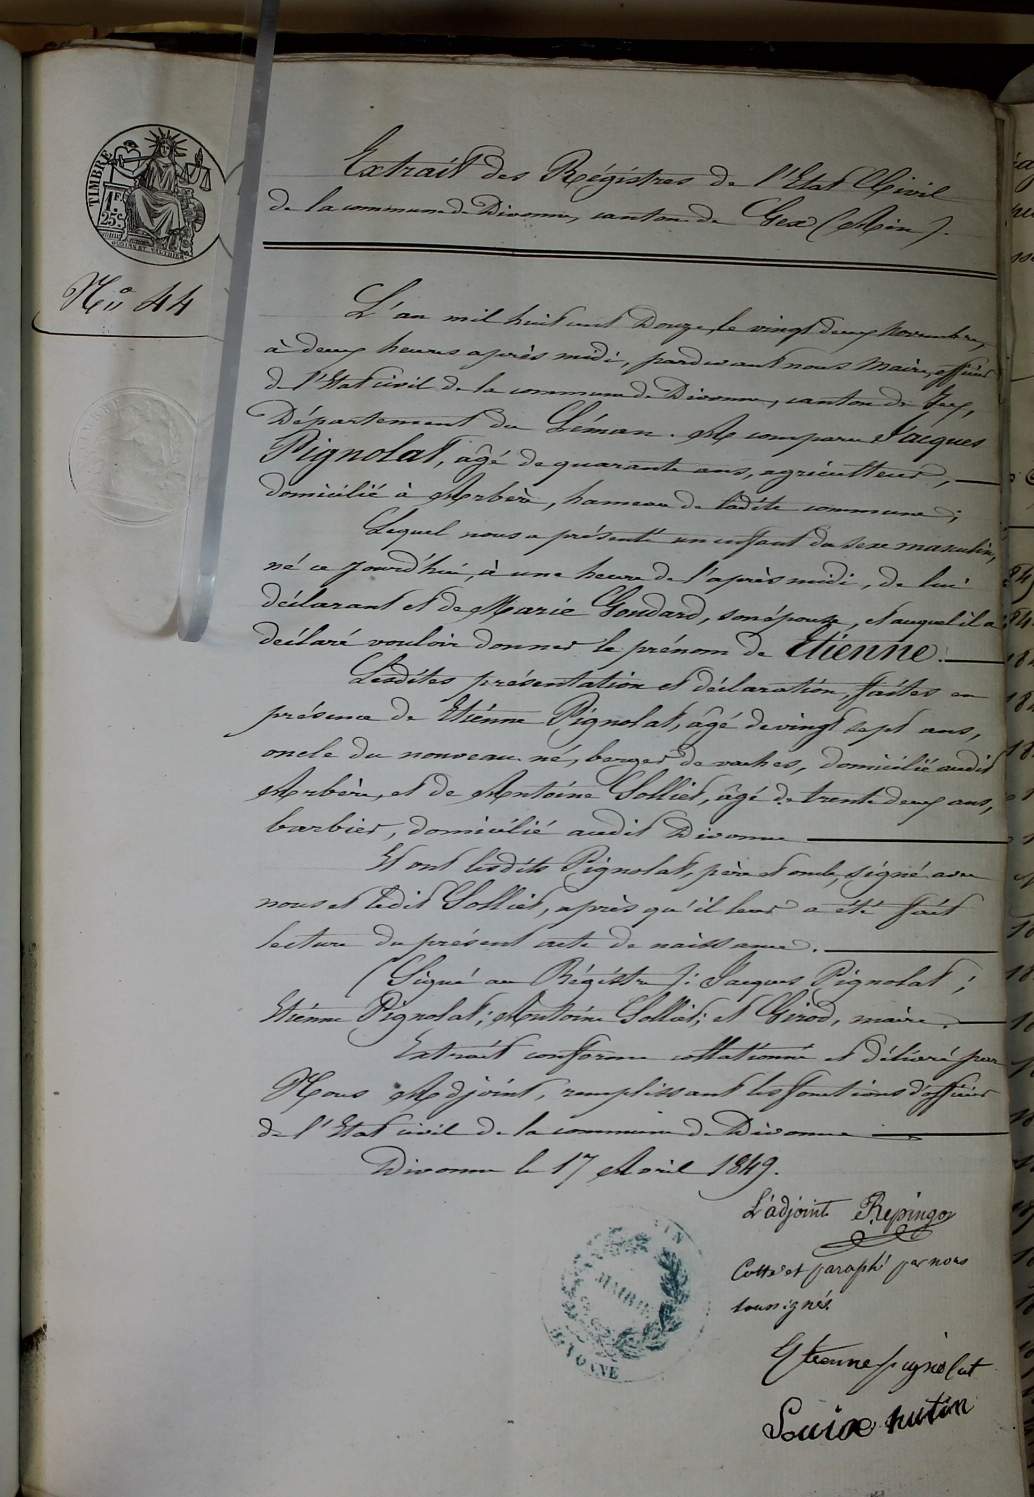 TIMBRE
1 F.
25 c.
Extrait des Régistres de l'Etat Civil
de la commune de Divonne, canton de Gex (Ain).
N.° 44
L'an mil huit cent Douze, le vingt deux Novembre,
à deux heures après midi, pardevant nous Maire, officier
de l'Etat civil de la commune de Divonne, canton de Gex,
Département du Léman. A comparu Jacques
Pignolat, âgé de quarante ans, agriculteur,
domicilié à Arbère, hameau de ladite commune;
Lequel nous a présenté un enfant du sexe masculin,
né ce jourd'hui, à une heure de l'après midi, de lui
déclarant et de Marie Goudard, son épouse, et auquel il a
déclaré vouloir donner le prénom de Etienne.
Lesdites présentation et déclaration, faites en
présence de Etienne Pignolat, âgé de vingt sept ans,
oncle du nouveau né, berger de vaches, domicilié audit
Arbère, et de Antoine Solliet, âgé de trente deux ans,
barbier, domicilié audit Divonne
Et ont lesdits Pignolat, père et oncle, signé avec
nous et ledit Solliet, après qu'il leur a été fait
lecture du présent acte de naissance.
(Signé au Régistre): Jacques Pignolat;
Etienne Pignolat; Antoine Solliet; et Girod, maire.
Extrait conforme collationné et délivré par
Nous Adjoint, remplissant les fonctions d'officier
de l'Etat civil de la commune de Divonne
Divonne le 17 Avril 1849.
L'adjoint Repingoy
Cotté et paraphé par nous
soussignés.
Etienne pignolat
Louise hutin
MAIRIE
DIVONNE